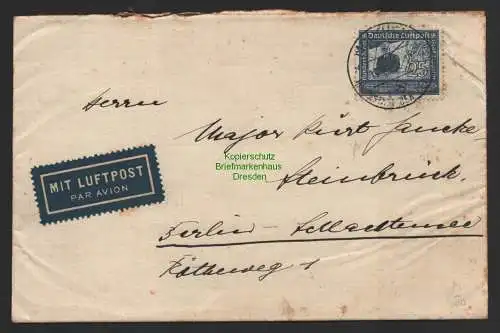 Deutsche Luftpost
25
Herrn
Major Kurt Jancke-
Steinbrück.
Berlin-Schlachtensee
MIT LUFTPOST
PAR AVION
Kopierschutz
Briefmarkenhaus
Dresden